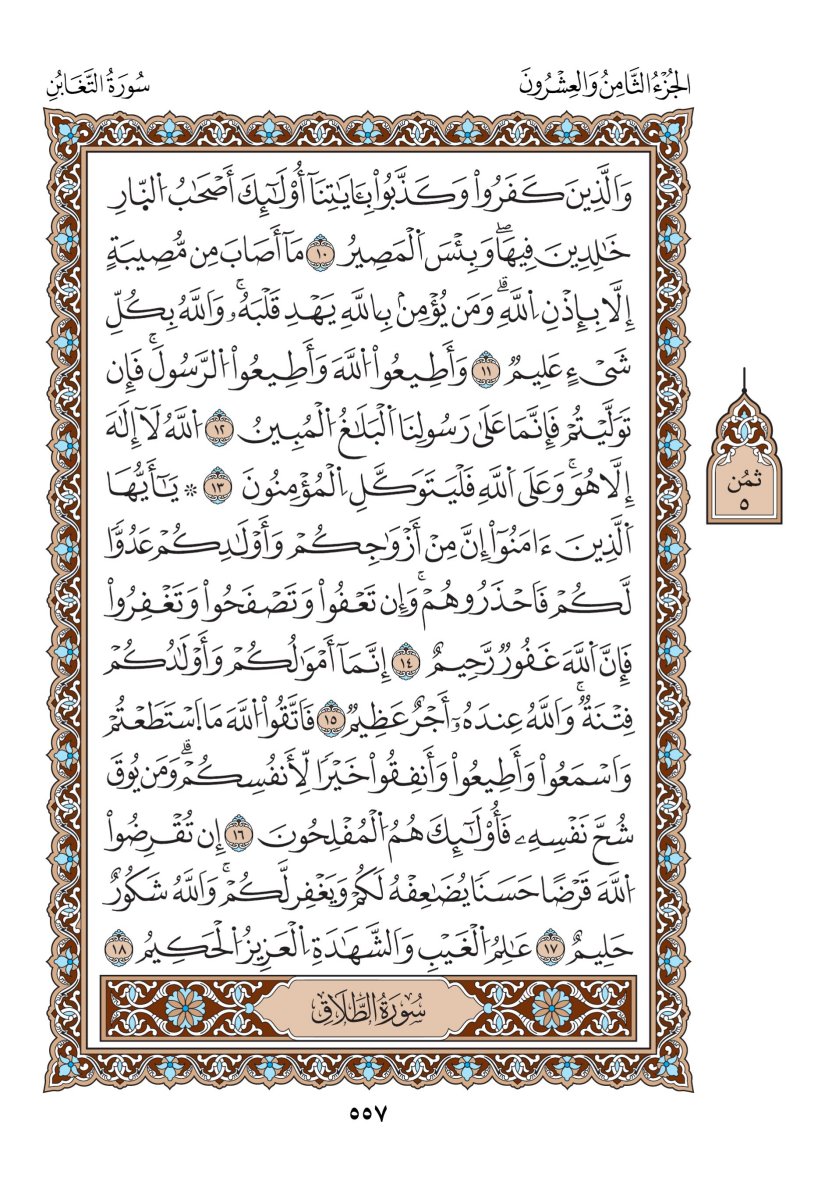 الجُزْءُ الثَّامِنُ وَالعِشْرُونَ
سُورَةُ التَّغَابُنِ
وَالَّذِينَ كَفَرُوا۟ وَكَذَّبُوا۟ بِـَٔايَٰتِنَآ أُو۟لَٰٓئِكَ أَصْحَٰبُ اُ۬لنّ۪ارِ
خَٰلِدِينَ فِيهَاۖ وَبِئْسَ اَ۬لْمَصِيرُ ١٠ مَآ أَصَابَ مِن مُّصِيبَةٍ
إِلَّا بِإِذْنِ اِ۬للَّهِۗ وَمَن يُؤْمِنۢ بِاللَّهِ يَهْدِ قَلْبَهُۥۚ وَاللَّهُ بِكُلِّ
شَىْءٍ عَلِيمٌ ١١ وَأَطِيعُوا۟ اُ۬للَّهَ وَأَطِيعُوا۟ اُ۬لرَّسُولَۚ فَإِن
تَوَلَّيْتُمْ فَإِنَّمَا عَلَىٰ رَسُولِنَا اَ۬لْبَلَٰغُ اُ۬لْمُبِينُ ١٢ اَ۬للَّهُ لَآ إِلَٰهَ
إِلَّا هُوَۚ وَعَلَى اَ۬للَّهِ فَلْيَتَوَكَّلِ اِ۬لْمُؤْمِنُونَ ١٣ ۞ يَٰٓأَيُّهَا
اَ۬لَّذِينَ ءَامَنُوٓا۟ إِنَّ مِنْ أَزْوَٰجِكُمْ وَأَوْلَٰدِكُمْ عَدُوًّا
لَّكُمْ فَاحْذَرُوهُمْۚ وَإِن تَعْفُوا۟ وَتَصْفَحُوا۟ وَتَغْفِرُوا۟
فَإِنَّ اَ۬للَّهَ غَفُورٌ رَّحِيمٌ ١٤ إِنَّمَآ أَمْوَٰلُكُمْ وَأَوْلَٰدُكُمْ
فِتْنَةٌۚ وَاللَّهُ عِندَهُۥٓ أَجْرٌ عَظِيمٌ ١٥ فَاتَّقُوا۟ اُ۬للَّهَ مَا اَ۪سْتَطَعْتُمْ
وَاسْمَعُوا۟ وَأَطِيعُوا۟ وَأَنفِقُوا۟ خَيْرًا لِّأَنفُسِكُمْۗ وَمَن يُوقَ
شُحَّ نَفْسِهِۦ فَأُو۟لَٰٓئِكَ هُمُ اُ۬لْمُفْلِحُونَ ١٦ إِن تُقْرِضُوا۟
اُ۬للَّهَ قَرْضًا حَسَنًا يُضَٰعِفْهُ لَكُمْ وَيَغْفِر لَّكُمْۚ وَاللَّهُ شَكُورٌ
حَلِيمٌ ١٧ عَٰلِمُ اُ۬لْغَيْبِ وَالشَّهَٰدَةِ اِ۬لْعَزِيزُ اُ۬لْحَكِيمُ ١٨
سُورَةُ الطَّلَاقِ
ثُمُن
٥
٥٥٧